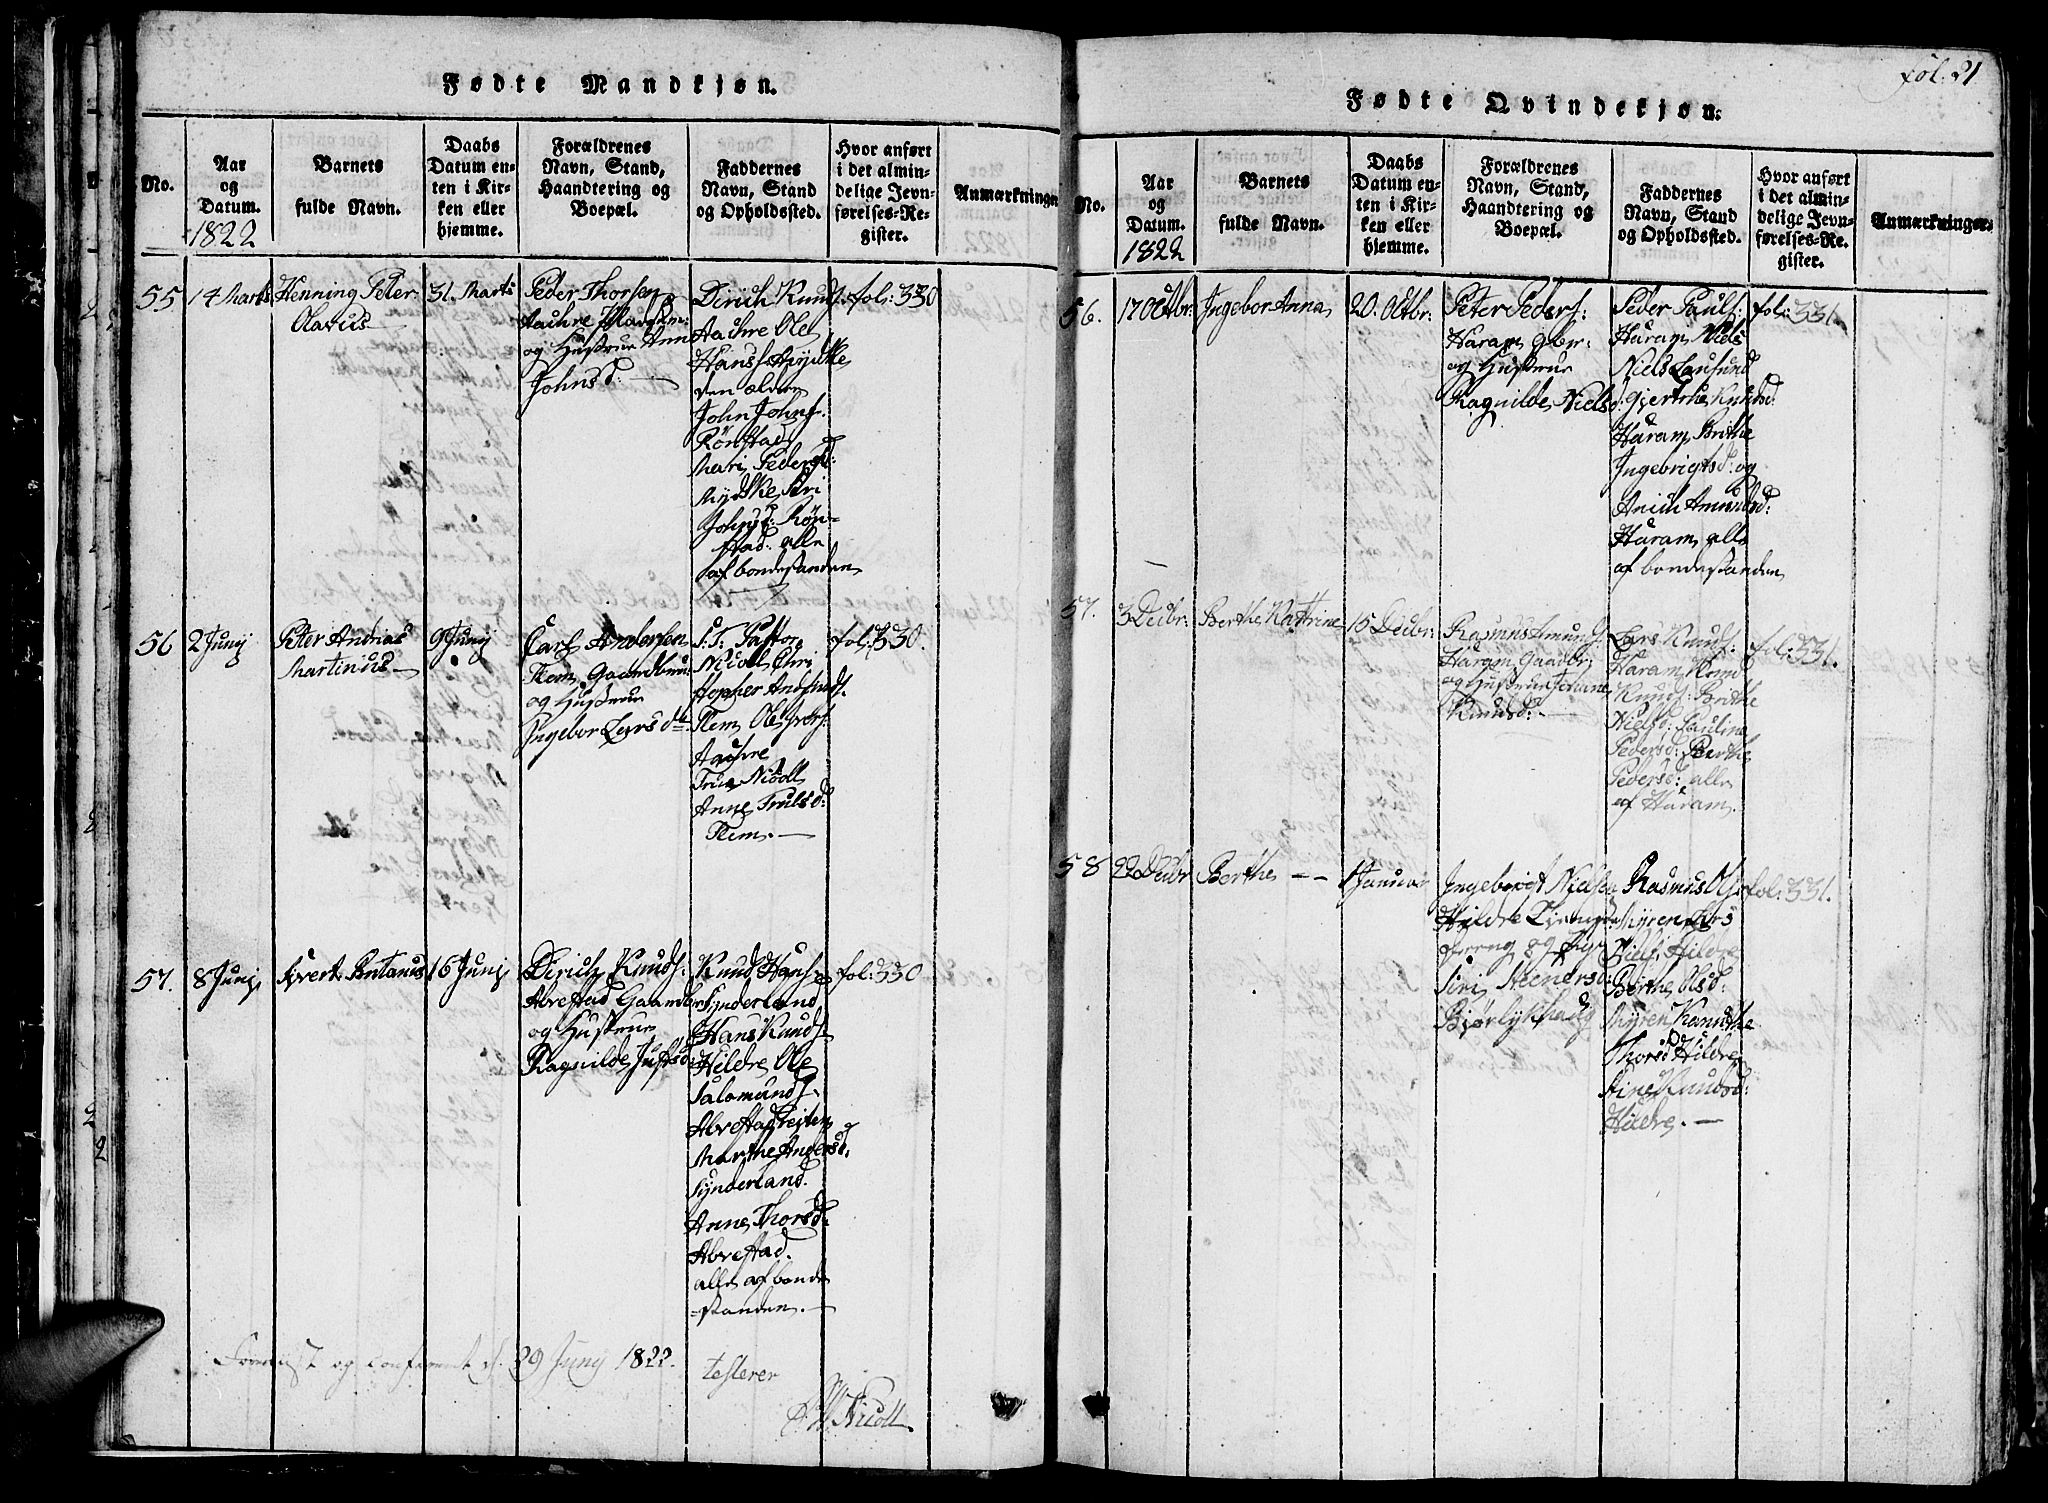 Fødte Mandkjøn.
No.
Aar
og
Datum.
1822
Barnets
fulde Navn.
Daabs
Datum en-
ten i Kir-
ken eller
hjemme.
Forældrenes
Navn, Stand,
Haandtering og
Boepæl.
Faddernes
Navn, Stand
og Opholdssted.
Hvor anført
i det almin-
delige Jevn-
førelses-Re-
gister.
Anmærkninge
55
14 Marts
Henning Peter
Olavus
31. Marts
Peder Thorsen
og Hustrue Ann
Johnsd:
Dirich Knuds:
Aachre Ole
Hanss
den ældre
John Johns.
Rönstad
Mari Pedersd:
Siri
Johnsd: Rön-
stad: alle
af bondestanden
fol: 330
56
2 Junij
Peter Andreas
Martinus
9 Junij
Carl Andersen
Flem Gaardbru:
og Hustrue
Ingebor Larsd
S. T. Pastor
Nicoll Chri
Flem Ole Ivers:
Aachre
Frue Nicoll
Anne Trulsd:
Flem.
fol: 330.
57.
8 Junij
Sivert Antanus
16 Junij
Dirich Knuds:
Abrestad Gaardbr
og Hustrue
Ragnilde
Knud Hans
Synderland
Hans Knuds
Hildre Ole
Salomunds.
Abrestad
Marthe Andersd:
Synderland.
Anne Thorsd:
Abrestad.
alle af bonde
standen.
fol: 330
og Confereret d. 29 Junij 1822.
testerer
Nicoll
fol. 21
Fødte Qvindekjøn.
No.
Aar
og
Datum.
1822
Barnets
fulde Navn.
Daabs
Datum en-
ten i Kir-
ken eller
hjemme.
Forældrenes
Navn, Stand,
Haandtering og
Boepæl.
Faddernes
Navn, Stand
og Opholdssted.
Hvor anført
i det almin-
delige Jevn-
førelses-Re-
gister.
Anmærkninger.
56.
17 Octbr:
Ingebor Anna
20. Octbr:
Peter Peders:
Haram Gbr:
og Hustrue
Ragnilde Nielsd:
Peder Pauls:
Haram Niels
Niels Lausund
Gjertrue Knudsd:
Haram Brithe
Ingebrigtsd: og
Anich Amundsd:
Haram alle
af bondestanden
fol: 331.
57.
3 Decbr:
Berthe Kattrine
15 Decbr:
Rasmus Amunds
Haram Gaardbr:
og Hustrue
Knudsd:
Lars Knuds:
Haram Knud
Knuds: Brithe
Nielsd: Pauline
Pedersd: Berthe
Pedersd: alle
af Haram.
fol: 331.
58
22 Decbr
Berthe
1 Januar
Ingebrigt Nielsen
Hildre
og
Siri Steinersd:
Rasmus Ols
Myren Lars
Niels: Hildre
Berthe Olsd:
Myren Kanutthe
Thorsd Hildre
Stine Knudsd:
Hildre.
fol: 331.